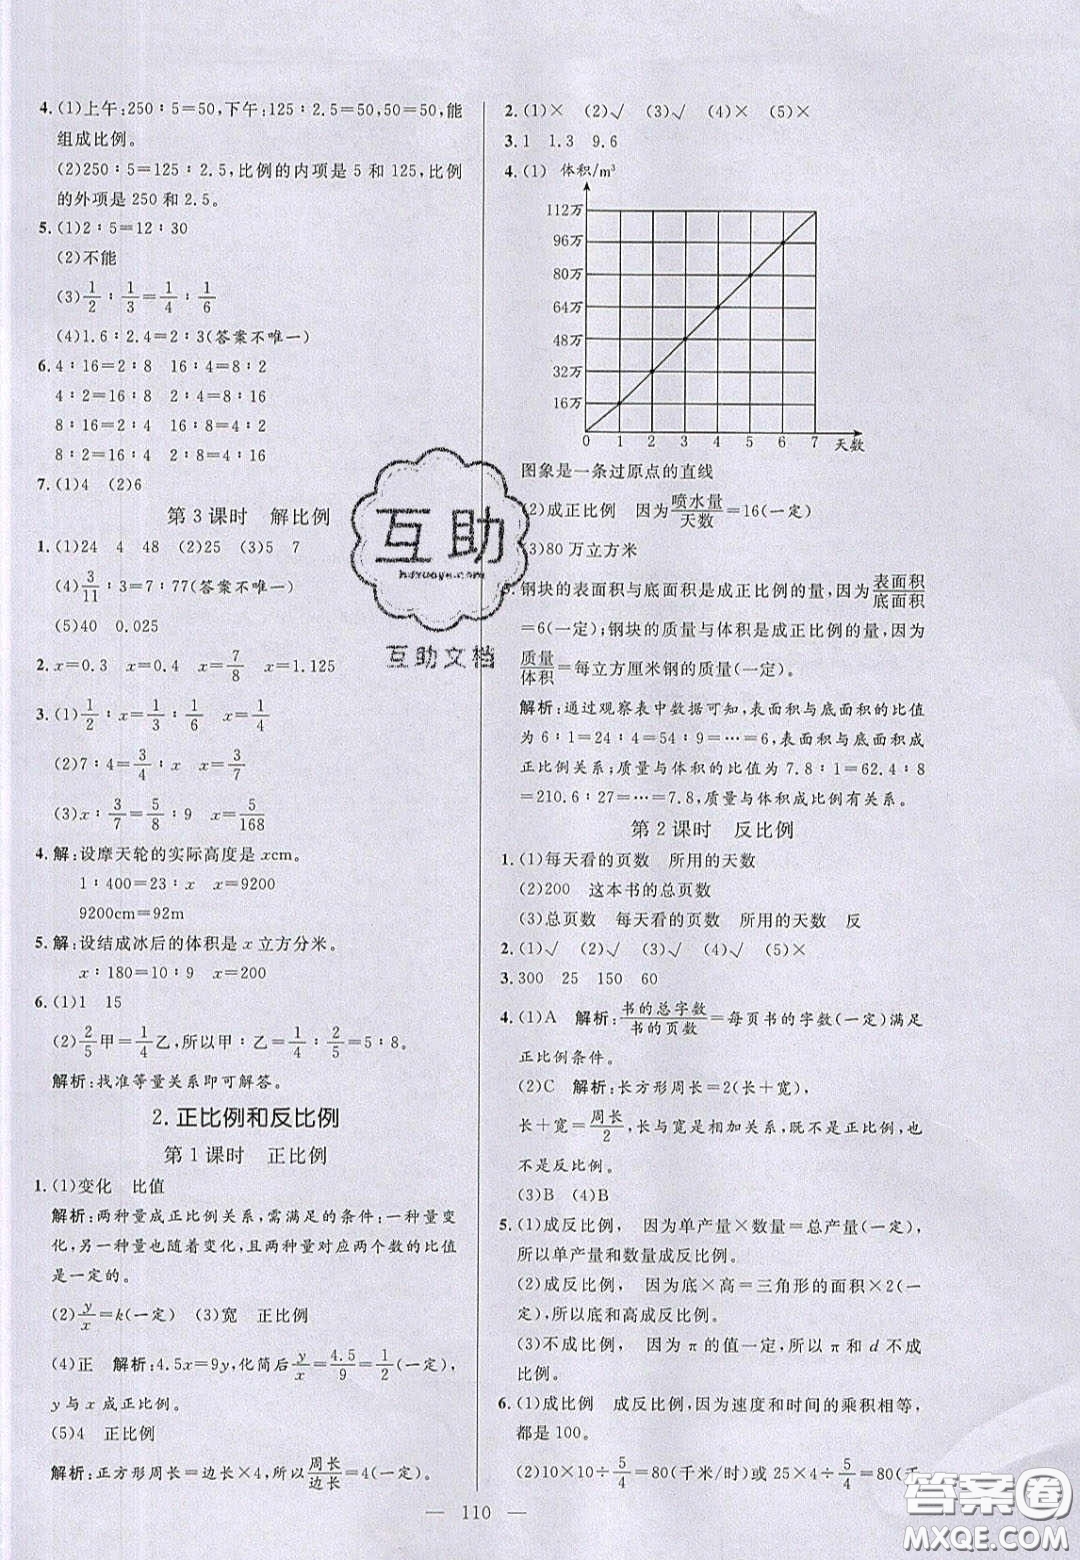 4. (1)上午:250∶5=50,下午:125∶2.5=50,50=50,能
组成比例。
(2)250∶5=125∶2.5,比例的内项是 5 和 125,比例
的外项是 250 和 2.5。
5. (1)2∶5=12∶30
(2)不能
(3)1/2∶1/3=1/4∶1/6
(4)1.6∶2.4=2∶3(答案不唯一)
6. 4∶16=2∶8 16∶4=8∶2
4∶2=16∶8 2∶4=8∶16
8∶16=2∶4 16∶8=4∶2
8∶2=16∶4 2∶8=4∶16
7. (1)4 (2)6
第 3 课时 解比例
1. (1)24 4 48 (2)25 (3)5 7
(4)3/11∶3=7∶77(答案不唯一)
(5)40 0.025
2. x=0.3 x=0.4 x=7/8 x=1.125
3. (1)1/2∶x=1/3∶1/6 x=1/4
(2)7∶4=3/4∶x x=3/7
(3)x∶3/7=5/8∶9 x=5/168
4. 解:设摩天轮的实际高度是 xcm。
1∶400=23∶x x=9200
9200cm=92m
5. 解:设结成冰后的体积是 x 立方分米。
x∶180=10∶9 x=200
6. (1)1 15
(2)2/5甲=1/4乙,所以甲∶乙=1/4∶2/5=5∶8。
解析:找准等量关系即可解答。
2. 正比例和反比例
第 1 课时 正比例
1. (1)变化 比值
解析:两种量成正比例关系,需满足的条件:一种量变
化,另一种量也随着变化,且两种量对应两个数的比值
是一定的。
(2)y/x=k(一定) (3)宽 正比例
(4)正 解析:4.5x=9y,化简后y/x=4.5/9=1/2(一定),
y 与 x 成正比例。
(5)4 正比例
解析:正方形周长=边长×4,所以周长/边长=4(一定)。
2. (1)× (2)√ (3)√ (4)× (5)×
3. 1 1.3 9.6
4. (1) 体积/m³
112万
96万
80万
64万
48万
32万
16万
0 1 2 3 4 5 6 7 天数
图象是一条过原点的直线
(2)成正比例 因为喷水量/天数=16(一定)
(3)80 万立方米
5. 钢块的表面积与底面积是成正比例的量,因为表面积/底面积
=6(一定);钢块的质量与体积是成正比例的量,因为
质量/体积=每立方厘米钢的质量(一定)。
解析:通过观察表中数据可知,表面积与底面积的比值
为 6∶1=24∶4=54∶9=…=6,表面积与底面积成
正比例关系;质量与体积的比值为 7.8∶1=62.4∶8
=210.6∶27=…=7.8,质量与体积成比例有关系。
第 2 课时 反比例
1. (1)每天看的页数 所用的天数
(2)200 这本书的总页数
(3)总页数 每天看的页数 所用的天数 反
2. (1)√ (2)√ (3)√ (4)√ (5)×
3. 300 25 150 60
4. (1)A 解析:书的总字数/书的页数=每页书的字数(一定)满足
正比例条件。
(2)C 解析:长方形周长=2(长+宽),
长+宽=周长/2,长与宽是相加关系,既不是正比例,也
不是反比例。
(3)B (4)B
5. (1)成反比例, 因为单产量×数量=总产量(一定),
所以单产量和数量成反比例。
(2)成反比例, 因为底×高=三角形的面积×2(一
定),所以底和高成反比例。
(3)不成比例, 因为 π 的值一定,所以 π 和 d 不成
比例。
6. (1)成比例 成反比例,因为速度和时间的乘积相等,
都是 100。
(2)10×10÷5/4=80(千米/时)或 25×4÷5/4=80(千
— 110 —
互助
hdzuoye.com
互助文档
答案圈
MXQE.COM